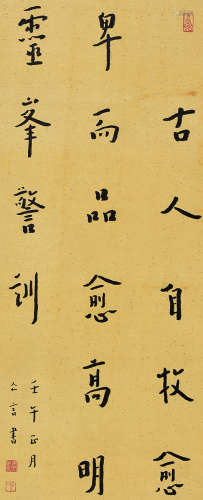 古人自牧愈
卑而品愈高明
靈峯警訓
壬午正月
亼言書